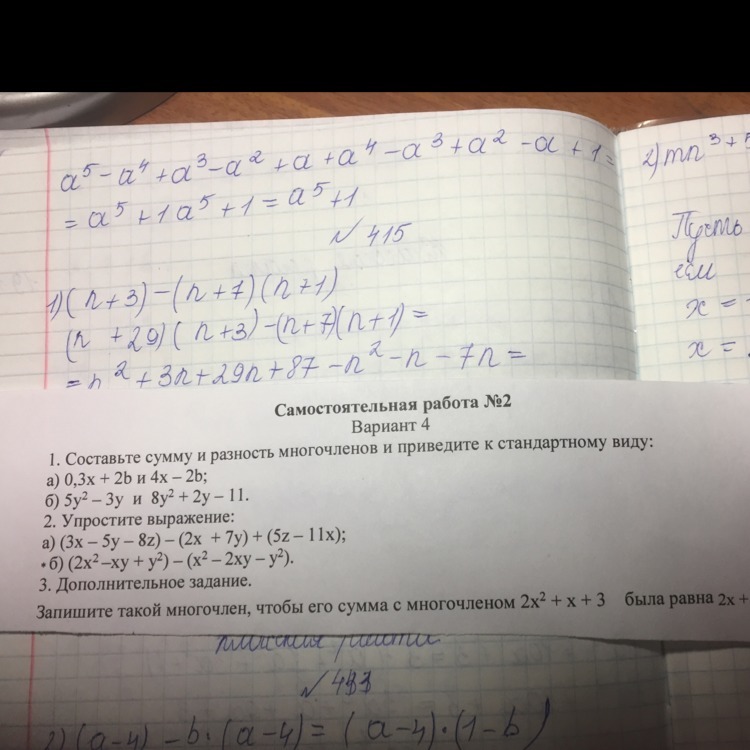 a⁵ – a⁴ + a³ – a² + a + a⁴ – a³ + a² – a + 1 =
= a⁵ + 1 a⁵ + 1 = a⁵ + 1
№ 415
1) (n + 3) – (n + 7) (n + 1)
(n + 29) (n + 3) – (n + 7) (n + 1) =
= n² + 3n + 29n + 87 – n² – n – 7n =
2) mn³ + 5
Пусть
ем
x =
x =
Самостоятельная работа №2
Вариант 4
1. Составьте сумму и разность многочленов и приведите к стандартному виду:
а) 0,3x + 2b и 4x – 2b;
б) 5y² – 3y и 8y² + 2y – 11.
2. Упростите выражение:
а) (3x – 5y – 8z) – (2x + 7y) + (5z – 11x);
б) (2x² –xy + y²) – (x² – 2xy – y²).
3. Дополнительное задание.
Запишите такой многочлен, чтобы его сумма с многочленом 2x² + x + 3 была равна 2x +
работа
(a – 4) – b · (a – 4) = (a – 4) · (1 – b)